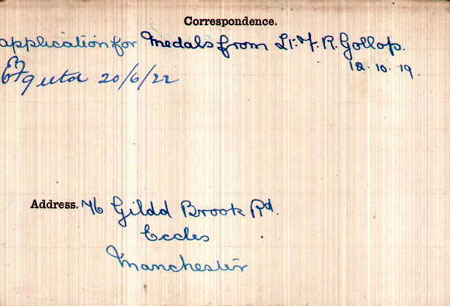 Correspondence.
application for Medals from Lt. F. R. Gollop.
18.10.19.
20/6/22
Address. 76 Gildd Brook Rd.
Eccles
Manchester